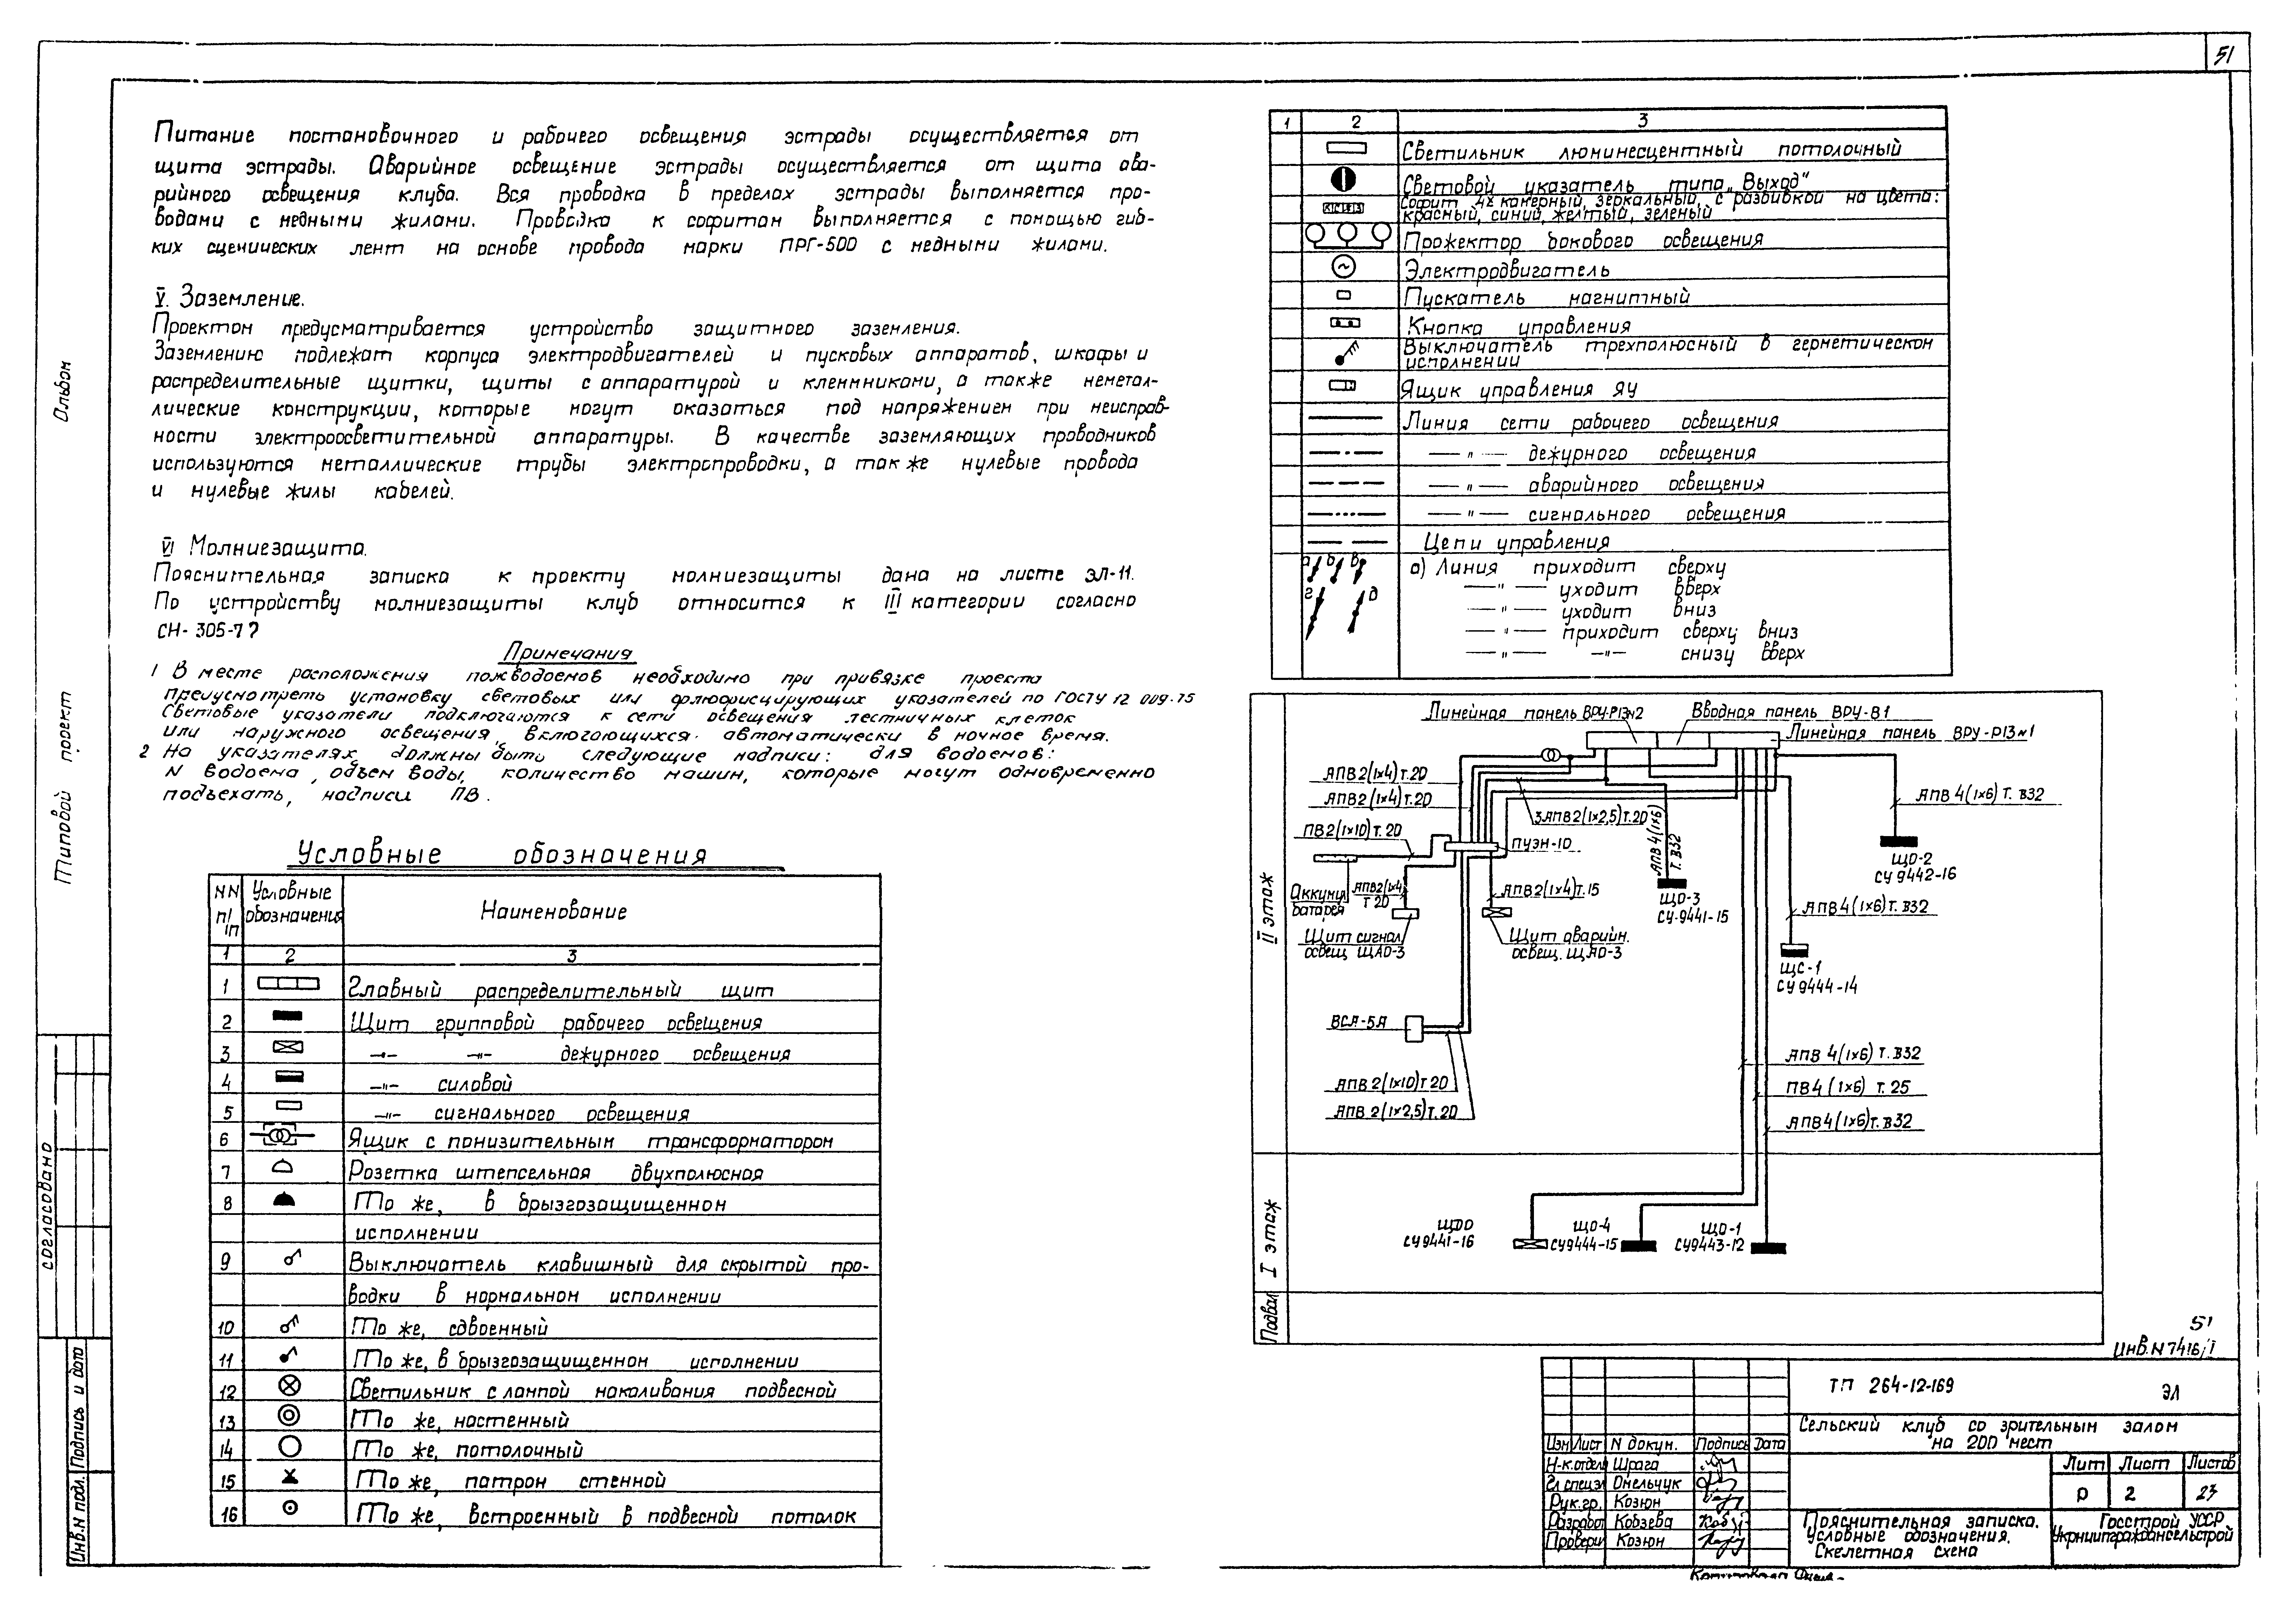 51
Питание постановочного и рабочего освещения эстрады осуществляется от
щита эстрады. Аварийное освещение эстрады осуществляется от щита ава-
рийного освещения клуба. Вся проводка в пределах эстрады выполняется про-
водами с медными жилами. Проводка к софитам выполняется с помощью гиб-
ких сценических лент на основе провода марки ПРГ-500 с медными жилами.
V. Заземление.
Проектом предусматривается устройство защитного заземления.
Заземлению подлежат корпуса электродвигателей и пусковых аппаратов, шкафы и
распределительные щитки, щиты с аппаратурой и клеммниками, а также неметал-
лические конструкции, которые могут оказаться под напряжением при неисправ-
ности электроосветительной аппаратуры. В качестве заземляющих проводников
используются металлические трубы электропроводки, а так же нулевые провода
и нулевые жилы кабелей.
VI Молниезащита.
Пояснительная записка к проекту молниезащиты дана на листе ЭЛ-11.
По устройству молниезащиты клуб относится к III категории согласно
СН-305-7?
Примечания
1 В месте расположения пожводоемов необходимо при привязке проекта
предусмотреть установку световых или флюорисцирующих указателей по ГОСТУ 12 009.75
Световые указатели подключаются к сети освещения лестничных клеток
или наружного освещения, включающихся автоматически в ночное время.
2 На указателях должны быть следующие надписи: для водоемов:
N водоема, объем воды, количество машин, которые могут одновременно
подъехать, надписи ПВ.
Условные обозначения
NN п/п
Условные обозначения
Наименование
1 2 3
1 Главный распределительный щит
2 Щит групповой рабочего освещения
3 —"— —"— дежурного освещения
4 —"— силовой
5 —"— сигнального освещения
6 Ящик с понизительным трансформатором
7 Розетка штепсельная двухполюсная
8 То же, в брызгозащищенном
исполнении
9 Выключатель клавишный для скрытой про-
водки в нормальном исполнении
10 То же, сдвоенный
11 То же, в брызгозащищенном исполнении
12 Светильник с лампой накаливания подвесной
13 То же, настенный
14 То же, потолочный
15 То же, патрон стенной
16 То же, встроенный в подвесной потолок
1 2 3
Светильник люминесцентный потолочный
Световой указатель типа „Выход"
Софит 4х камерный, зеркальный, с разбивкой на цвета:
красный, синий, желтый, зеленый
Прожектор бокового освещения
Электродвигатель
Пускатель магнитный
Кнопка управления
Выключатель трехполюсный в герметическом
исполнении
Ящик управления ЯУ
Линия сети рабочего освещения
—"— дежурного освещения
—"— аварийного освещения
—"— сигнального освещения
Цепи управления
а б в
г д
а) Линия приходит сверху
—"— уходит вверх
—"— уходит вниз
—"— приходит сверху вниз
—"— —"— снизу вверх
Линейная панель ВРУ-Р13N2
Вводная панель ВРУ-В1
Линейная панель ВРУ-Р13N1
АПВ2(1х4)т.20
АПВ2(1х4)т.20
ПВ2(1х10)т.20
3АПВ2(1х2,5)т.20
ПУЭН-10
АПВ4(1х6)
т.В32
АПВ 4(1х6) т. В32
ЩО-2
СУ 9442-16
Аккумул
батарея
АПВ2(1х4)
т 20
АПВ2(1х4)т.15
ЩО-3
СУ-9441-15
АПВ4(1х6)т.В32
Щит сигнал
освещ ЩАО-3
Щит аварийн.
освещ. ЩАО-3
ЩС-1
СУ9444-14
II этаж
ВСА-5А
АПВ 2(1х10)т.20
АПВ 2(1х2,5)т.20
АПВ 4(1х6) т.В32
ПВ4 (1х6) т.25
АПВ4(1х6)т.В32
I этаж
ЩДО
СУ9441-16
ЩО-4
СУ9444-15
ЩО-1
СУ9443-12
Подвал
51
Инв.N7416/1
ТП 264-12-169 ЭЛ
Сельский клуб со зрительным залом
на 200 мест
Изм Лист N докум. Подпись Дата
Н-к.отдела Шрага
Гл спец.эл Омельчук
Рук.гр. Козюн
Разработ Кобзева
Проверил Козюн
Лит Лист Листов
Р 2 23
Пояснительная записка.
Условные обозначения.
Скелетная схема
Госстрой УССР
Укрниипграждансельстрой
Альбом
Типовой проект
согласовано
Подпись и дата
Инв.N подл.